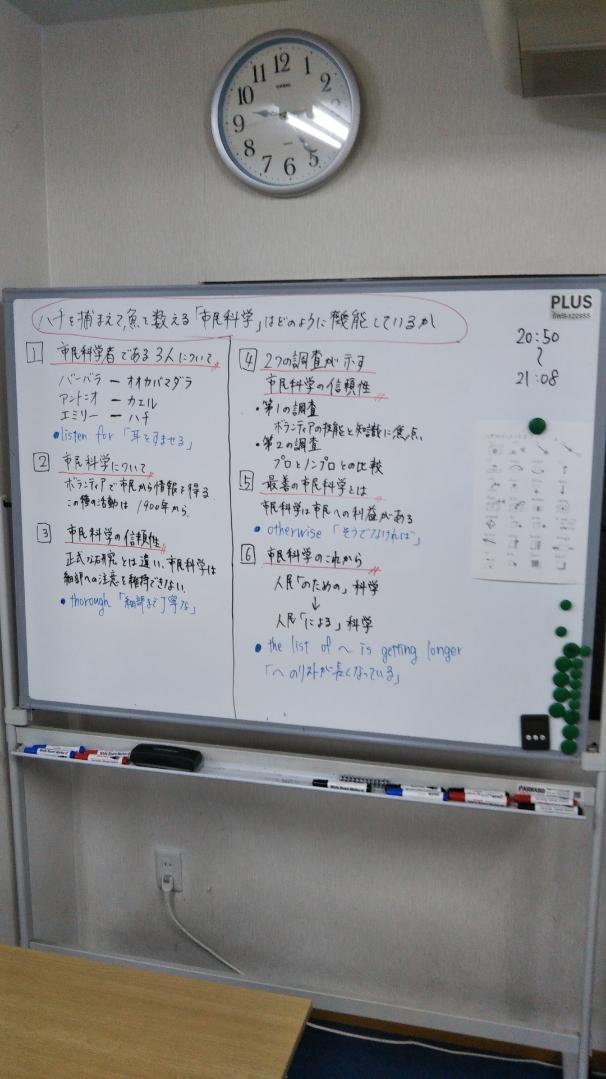 12
1
2
3
5
6
7
8
9
10
11
CASIO
PLUS
ハチを捕まえて、魚を数える「市民科学」はどのように機能しているか
20:50
〜
21:08
1 市民科学者である3人について
バーバラ ー オオカバマダラ
アントニオ ー カエル
エミリー ー ハチ
•listen for「耳をすませる」
2 市民科学について
ボランティアで市民から情報を得る
この種の活動は1900年から
3 市民科学の信頼性
正式な研究とは違い、市民科学は
細部への注意を維持できない
• thorough「細部まで丁寧な」
4 2つの調査が示す
市民科学の信頼性
•第1の調査
ボランティアの技能と知識に焦点
•第2の調査
プロとノンプロとの比較
5 最善の市民科学とは
市民科学は市民への利益がある
• otherwise「そうでなければ」
6 市民科学のこれから
人民「のための」科学
↓
人民「による」科学
• the list of ~ is getting longer
「〜のリストが長くなっている」